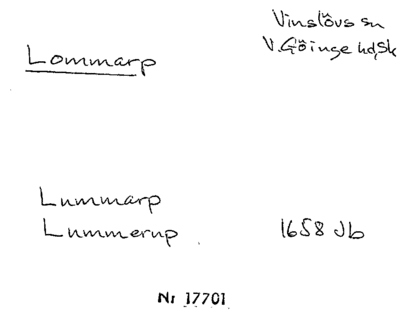 Vinslövs sn
Lommarp
V. Göinge hd, Sk
Lummarp
Lummerup 1658 Jb
Nr 17701